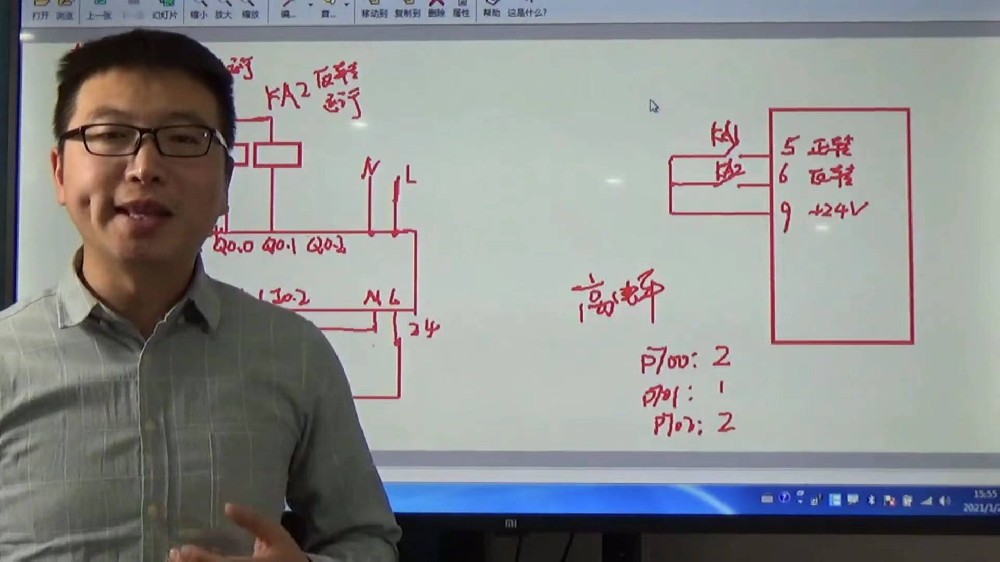 打开 浏览 上一张 幻灯片 缩小 放大 缩放 编... 移动到 复制到 删除 属性 帮助 这是什么?
运行
KA2 反转
运行
N L
Q0.0 Q0.1 Q0.2
I0.2 N L
24
KA1
KA2
5 正转
6 反转
9 +24V
P700: 2
P701: 1
P702: 2
mi
15:55
2021/1/2